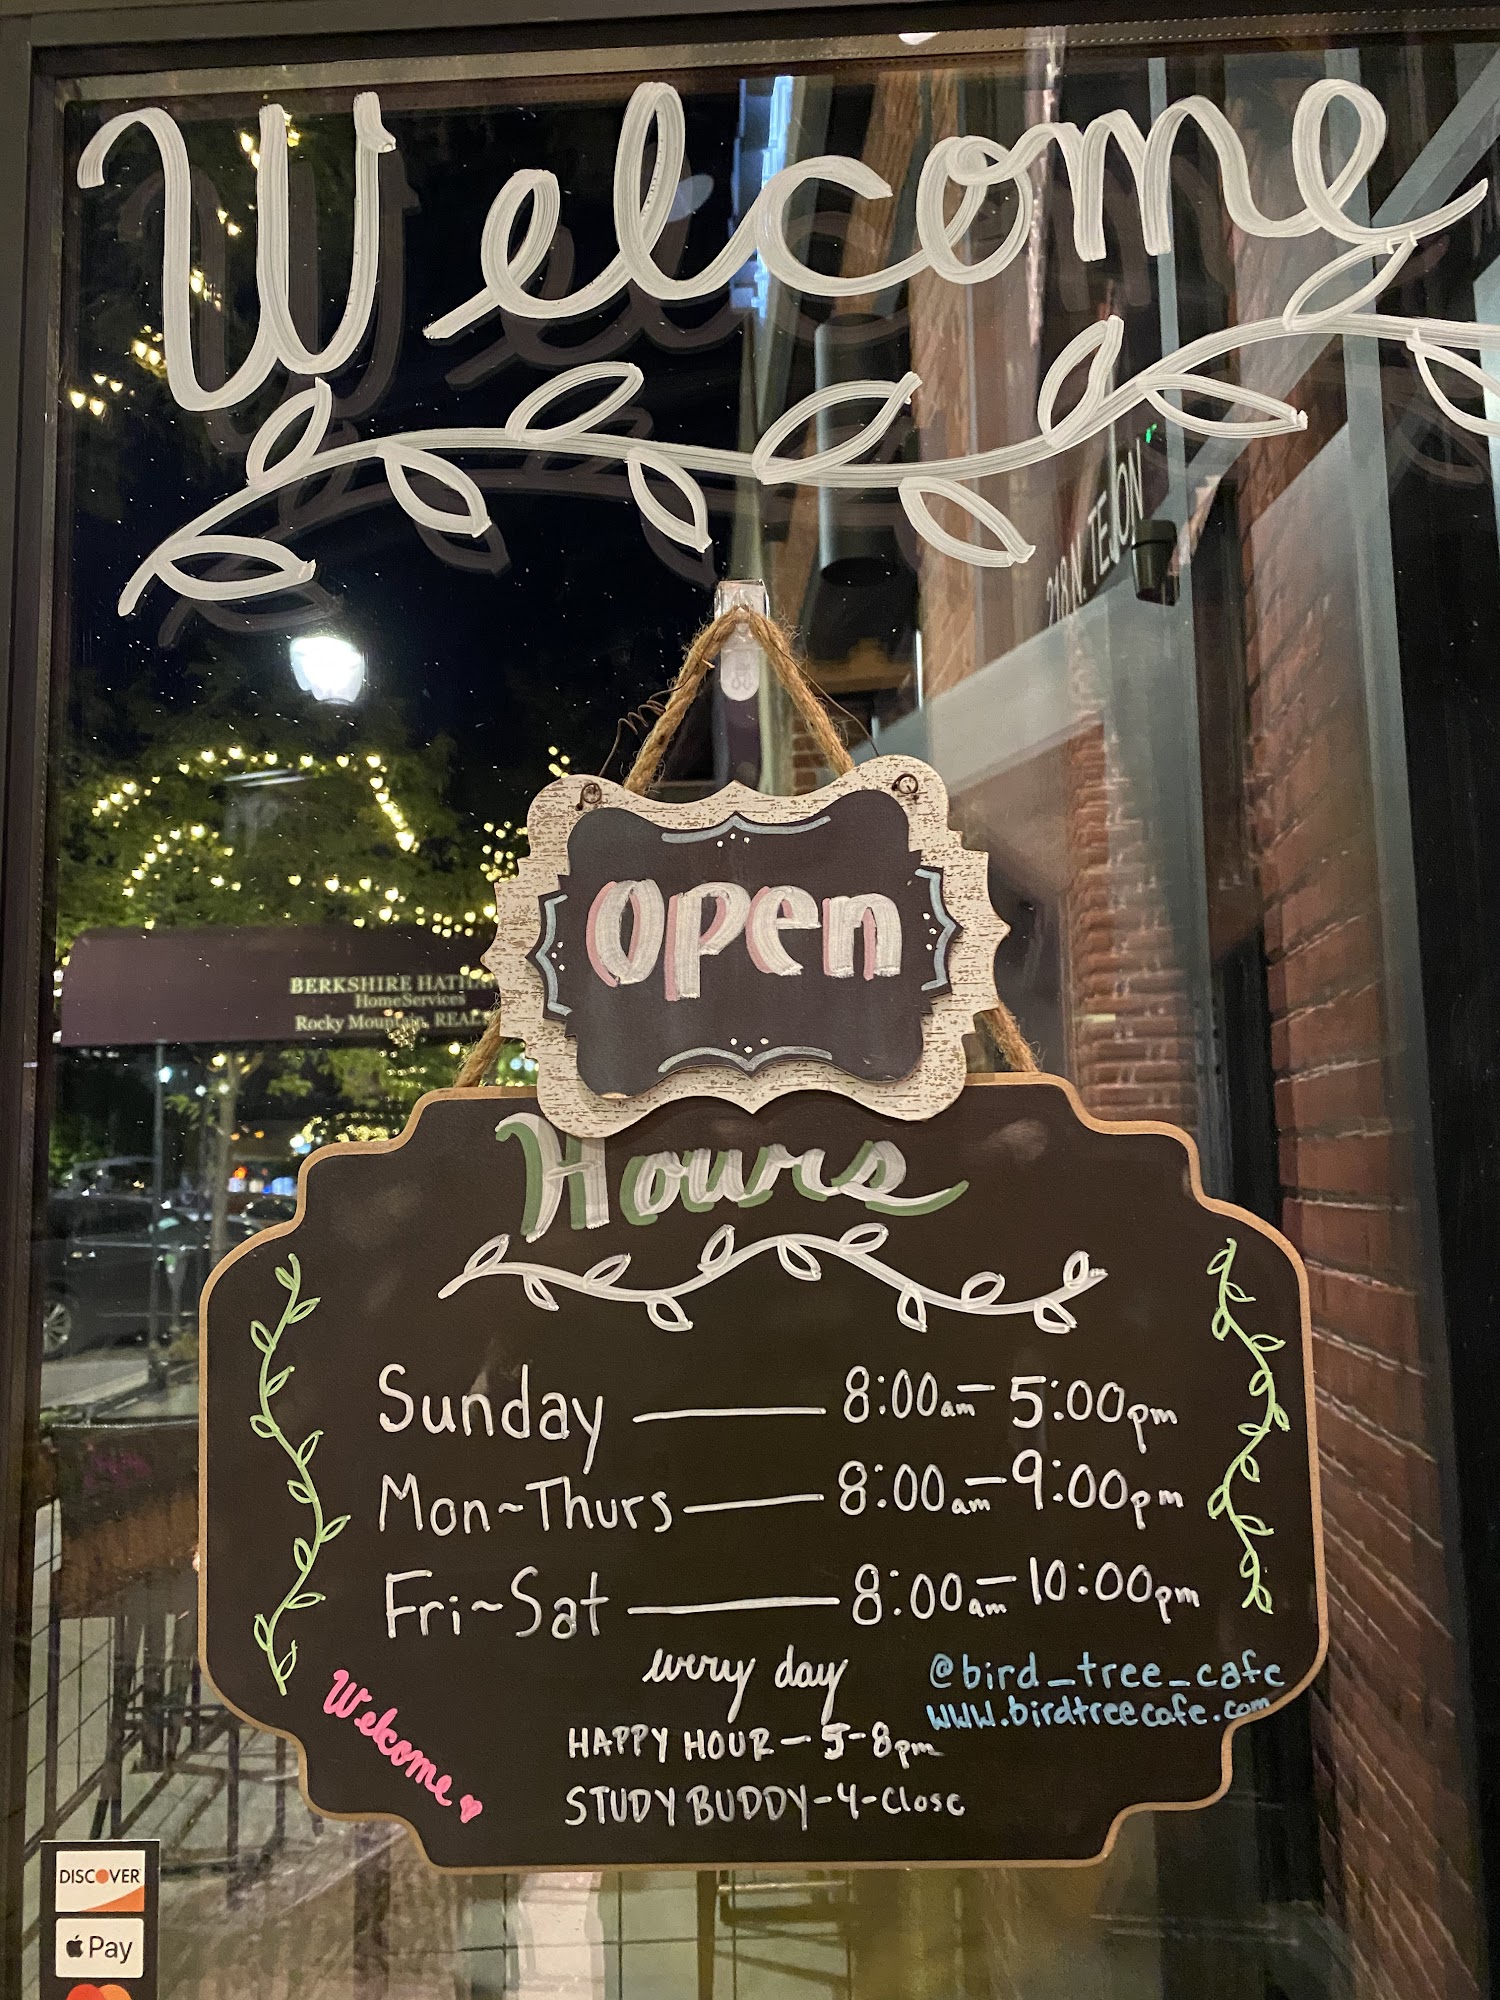 Welcome
218 N. TEJON
open
BERKSHIRE HATHA
HomeServices
Rocky Mountain, REAL
Hours
Sunday — 8:00am – 5:00pm
Mon~Thurs — 8:00am – 9:00pm
Fri~Sat — 8:00am – 10:00pm
every day
@bird_tree_cafe
www.birdtreecafe.com
Welcome
HAPPY HOUR – 5-8pm
STUDY BUDDY-4-Close
DISCOVER
Pay